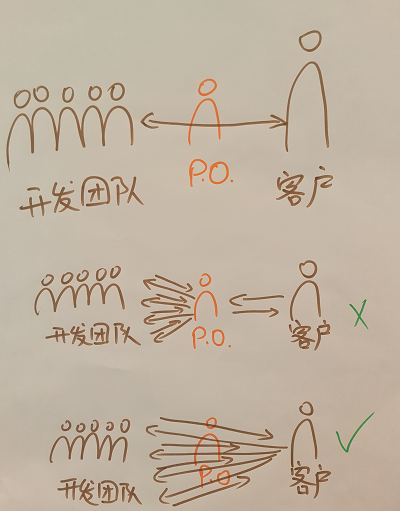 开发团队 P.O. 客户
开发团队 P.O. 客户
开发团队 P.O 客户